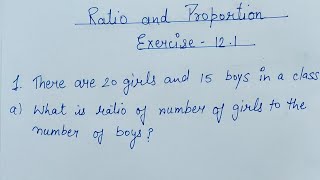 Ratio and Proportion
Exercise - 12.1
1. There are 20 girls and 15 boys in a class
a) What is ratio of number of girls to the
number of boys?